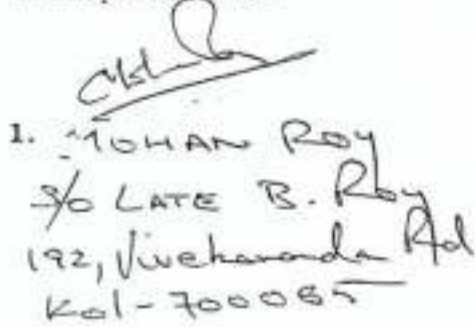 1. MOHAN ROY
S/o LATE B. Roy
192, Vivekananda Rd
Kol-700065